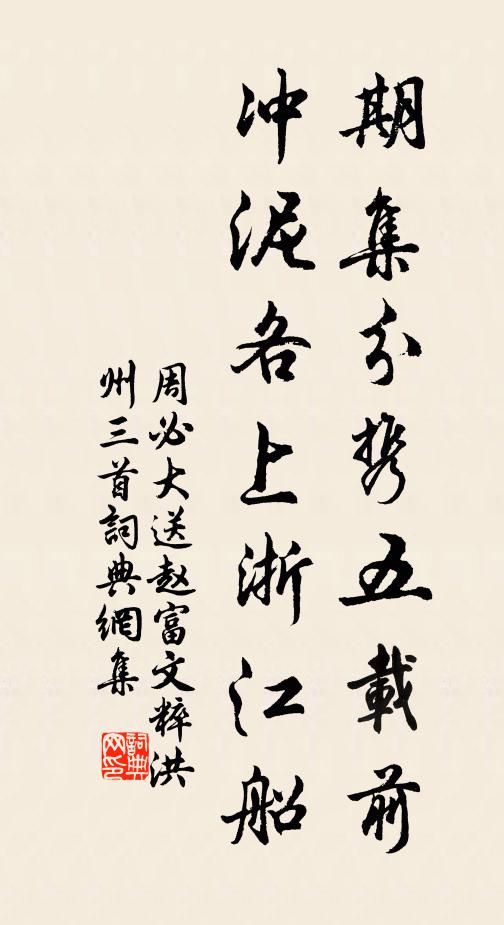 期集分携五載前
冲泥各上浙江船
周必大送赵富文粹洪
州三首詞典網集
詞典網印